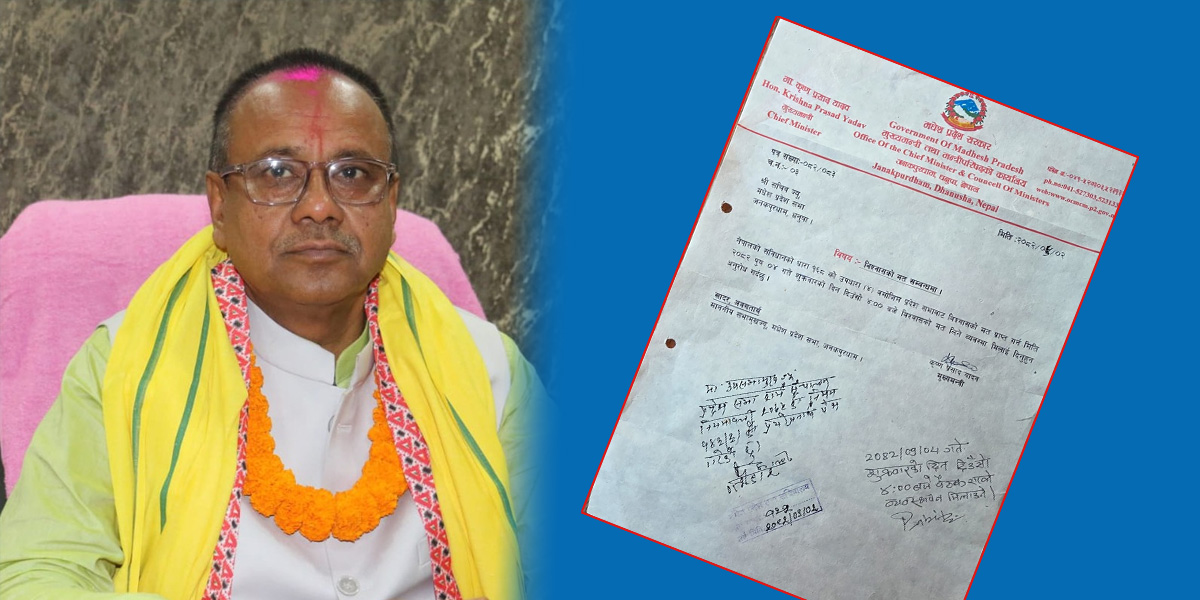 मा. कृष्ण प्रसाद यादव
Hon. Krishna Prasad Yadav
मुख्यमन्त्री
Chief Minister
मधेश प्रदेश सरकार
Government Of Madhesh Pradesh
मुख्यमन्त्री तथा मन्त्रीपरिषद्को कार्यालय
Office Of the Chief Minister & Councell Of Ministers
जनकपुरधाम, धनुषा, नेपाल
Janakpurdham, Dhanusha, Nepal
ph.no:041-527303,523133
web:www.ocmcm.p2.gov.n
पत्र संख्याः-०८२/०८३
च.नं.:- ०३
मिति :२०८२/०९/०२
श्री सचिव ज्यू,
मधेश प्रदेश सभा
जनकपुरधाम, धनुषा ।
विषय :- विश्वासको मत सम्बन्धमा ।
नेपालको संविधानको धारा १६८ को उपधारा (४) बमोजिम प्रदेश सभाबाट विश्वासको मत प्राप्त गर्न मिति
२०८२ पुष ०४ गते शुक्रवारको दिन दिउँसो ४:०० बजे विश्वासको मत लिने व्यवस्था मिलाई दिनुहुन
अनुरोध गर्दछु ।
कृष्ण प्रसाद यादव
मुख्यमन्त्री
सादर, अवगतार्थ
माननीय सभामुखज्यू, मधेश प्रदेश सभा, जनकपुरधाम ।
मा. उपसभामुख ज्यू
प्रदेश सभा
2082/09/04 गते
शुक्रवारको दिन दिउँसो
४:०० बजे बैठक
व्यवस्थापन मिलाउने ।